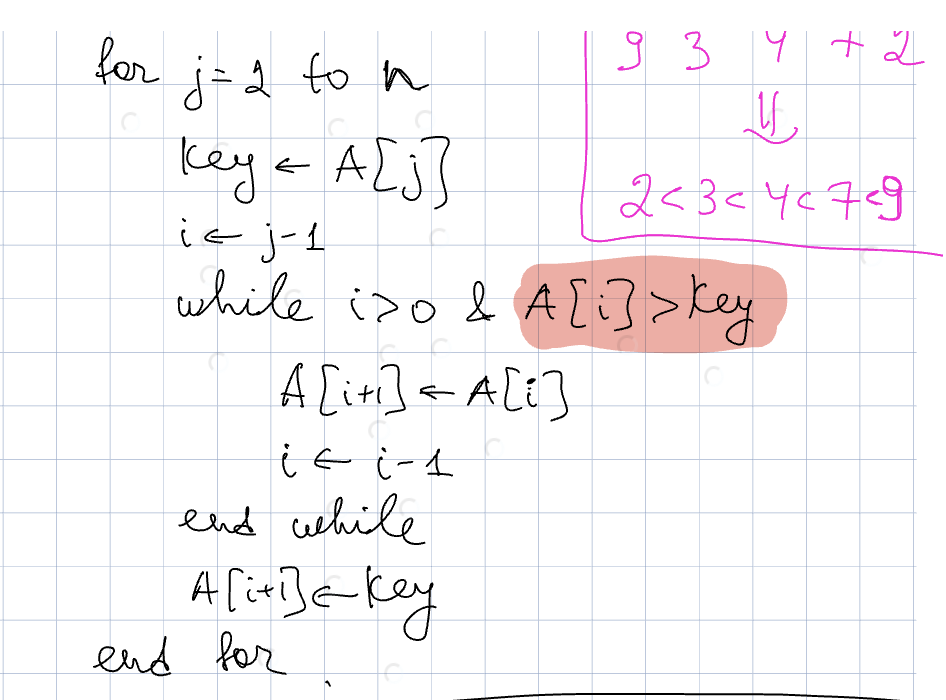 for j=2 to n
key ← A[j]
i ← j-1
while i>0 & A[i]>key
A[i+1] ← A[i]
i ← i-1
end while
A[i+1] ← key
end for
9 3 4 7 2
⇓
2<3<4<7<9